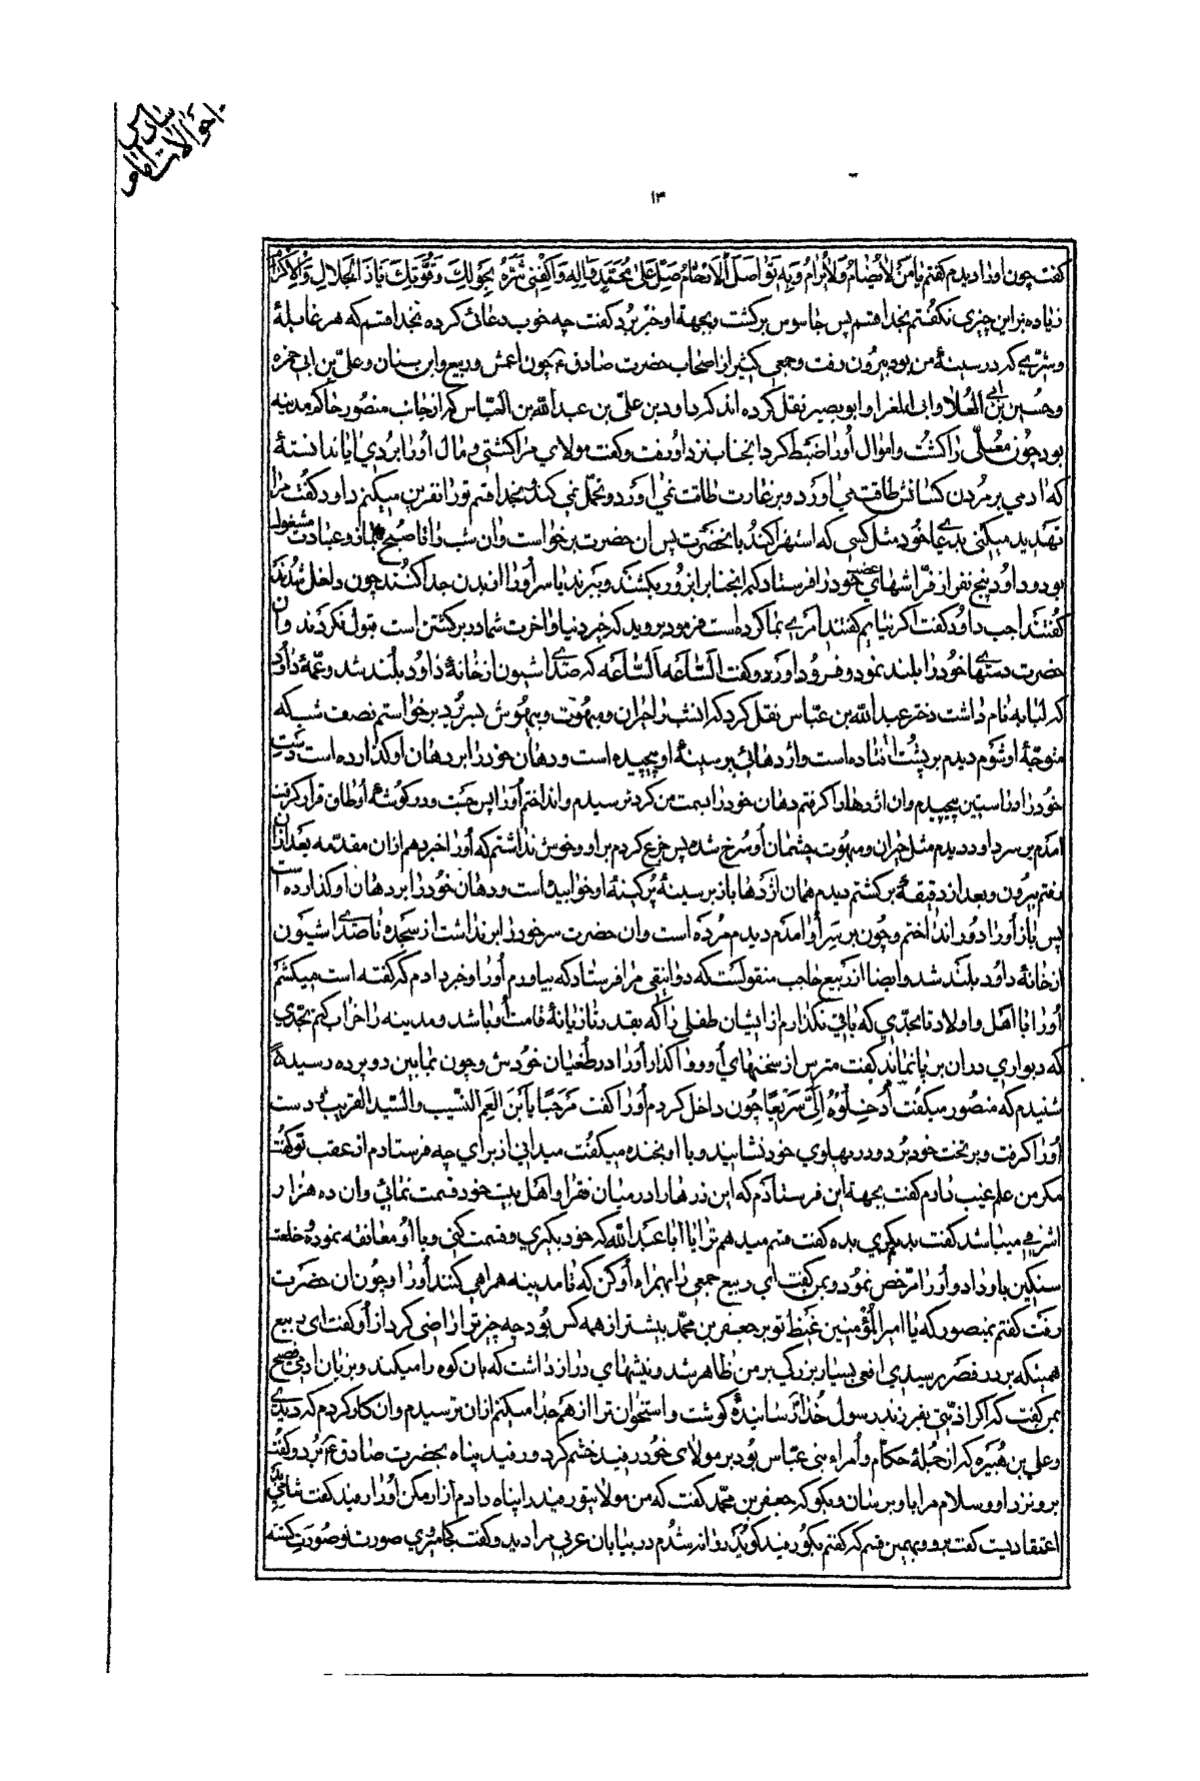 احوالات امام
سادس
۱۳
کفت چون اورا دیدم کفتم یا من لا یضام ولا یرام وبه تواصل الارحام صل علی محمد وآله واکفنی شره بحولک وقوتک یا ذا الجلال والاکرام
زیاده بر این چیزی نکفتم بخدا قسم پس جاسوس برکشت وبجهة او خبر برد کفت چه خوب دعائی کرده بخدا قسم که هر غایلهٔ
وشری که در سینهٔ من بود بیرون رفت وجمعی کثیر از اصحاب حضرت صادق ع چون اعمش وربیع وابن سنان وعلی بن ابی حمزه
وحسین بن ابی العلا وابی المغرا وابو بصیر نقل کرده اند که داود بن علی بن عبد الله بن العباس که از جانب منصور حاکم مدینه
بود چون معلی را کشت واموال اورا ضبط کرد انجناب نزد او رفت وکفت مولای مرا کشتی ومال اورا بردی ایا ندانستهٔ
که ادمی بر مردن کسانش طاقت می اورد وبر غارت طاقت نمی اورد وتحمل نمی کند بخدا قسم تورا نفرین میکنم داود کفت مرا
تهدید میکنی بدعای خود مثل کسی که استهزا کند بانحضرت پس ان حضرت برخواست وان شب را تا صبح بنماز وعبادت مشغول
بود وداود پنج نفر از فراشهای خود را فرستاد که انجناب را بزور بکشند وببرند یا سر اورا از بدن جدا کنند چون داخل شدند
کفتند اجب داود کفت اکر نیایم کفتند امری بما کرده است فرمود بروید که خیر دنیا واخرت شما در برکشتن است قبول نکردند وان
حضرت دستهای خود را بلند نمود وفرود اورد وکفت الساعه الساعه که صدای شیون از خانهٔ داود بلند شد وعمهٔ داود
که لبابه نام داشت دختر عبد الله بن عباس نقل کرد که انشب را حیران ومبهوت وبیهوش بسر برد برخواستم نصف شب که
متوجهٔ او شوم دیدم بر پشت افتاده است واژدهائی بر سینهٔ او پیچیده است ودهان خود را بر دهان او کذارده است دست
خود را در استین پیچیدم وان اژدها را کرفتم دهان خود را بسمت من کرد ترسیدم وانداختم اورا پس جست ودر کوشهٔ اوطاق قرار کرفت
امدم بر سر داود دیدم مثل حیران ومبهوت چشمان او سرخ شده پس جزع کردم بر او وخوش نداشتم که اورا خبر دهم از ان مقدمه بعد از ان
رفتم بیرون وبعد از دقیقهٔ برکشتم دیدم همان اژدها باز بر سینهٔ پر کینهٔ او خوابیده است ودهان خود را بر دهان او کذارده است
پس باز اورا دور انداختم وچون بر سر او امدم دیدم مرده است وان حضرت سر خود را بر نداشت از سجده تا صدای شیون
از خانهٔ داود بلند شد وایضا از ربیع حاجب منقولست که دوانیقی مرا فرستاد که بیاورم اورا وخبر دادم که کفته است میکشم
اورا با اهل واولاد تا بحدی که باقی نکذارم از ایشان طفلی را که بقدر تازیانهٔ قامت او باشد ومدینه را خراب کنم بحدی
که دیواری در ان بر پا نماند کفت مترس از سخنهای او وواکذار اورا در طغیان خودش وچون نمابین دو پرده رسید
شنیدم که منصور میکفت ادخلوه الی سریعا چون داخل کردم اورا کفت مرحبا یا بن العم النسیب والسید القریب دست
اورا کرفت وبر تخت خود برد ودر پهلوی خود نشانید وبا او بخنده میکفت میدانی از برای چه فرستادم از عقب تو کفت
مکر من علم غیب دارم کفت بجهة این فرستادم که این زرها را در میان فقرا واهل بیت خود قسمت نمائی وان ده هزار
اشرفی میباشد کفت بدیکری بده کفت قسم میدهم ترا یا ابا عبد الله که خود بکیری وقسمت کنی وبا او معانقه نموده خلعت
سنکین باو داد واورا مرخص نمود وبمن کفت ای ربیع جمعی را بهمراه او کن که تا مدینه همراهی کنند اورا وچون ان حضرت
رفت کفتم بمنصور که یا امیر المؤمنین غیظ تو بر جعفر بن محمد بیشتر از همه کس بود چه چیز ترا راضی کرد از او کفت ای ربیع
همینکه بر در قصر رسیدی افعی بسیار بزرکی بر من ظاهر شد ونیشهای دراز داشت که بان کوه را میکند وبزبان ادمی فصیح
بمن کفت که اکر اذیتی بفرزند رسول خدا رسانیدهٔ کوشت واستخوان ترا از هم جدا میکنم از ان ترسیدم وان کار کردم که دیدی
وعلی بن هبیره که از جملهٔ حکام وامراء بنی عباس بود بر مولای خود رفید خشم کرد ورفید پناه بحضرت صادق ع برد وکفت
برو نزد او وسلام مرا باو برسان وبکو که جعفر بن محمد کفت که من مولایتو رفید را پناه دادم آزار مکن اورا رفید کفت شامی
اعتقادیست کفت برو وبهمین قسم که کفتم بکو رفید کوید روانه شدم در بیابان عربی مرا دید وکفت کجا میروی صورت تو صورت کشته